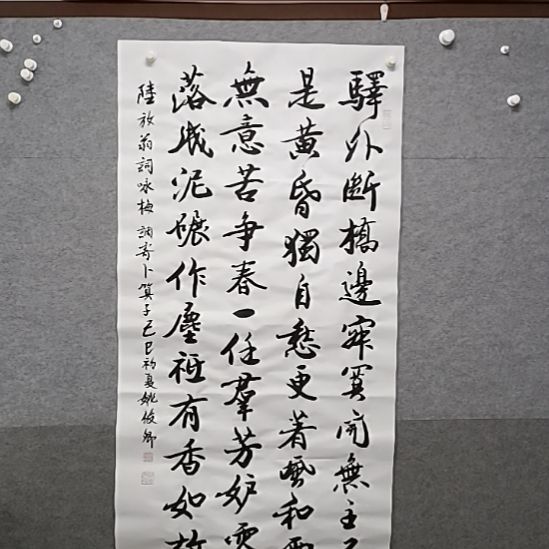 驛外斷橋邊寂寞開無主
是黃昏獨自愁更著風和雨
無意苦争春一任羣芳妒零
落成泥碾作塵祗有香如故
陸放翁詞咏梅 調寄卜算子己巳初夏姚俊卿